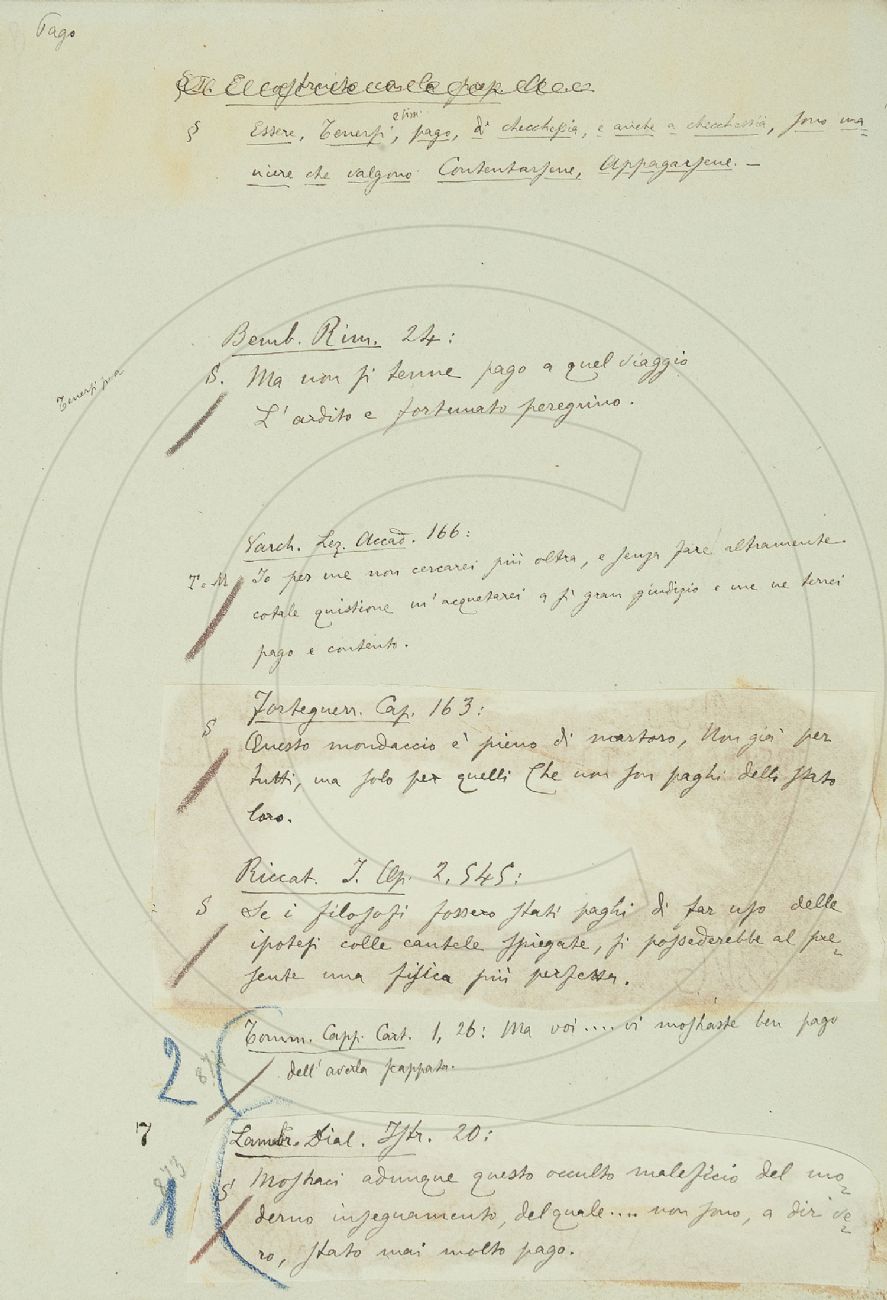 Pago
§ Essere, Tenersi, e simi pago, di checchessia, e anche a checchessia, sono ma=
niere che valgono Contentarsene, Appagarsene. —
Bemb. Rim. 24:
Tenersi pago
§. Ma non si tenne pago a quel viaggio
L'ardito e fortunato peregrino.
Varch. Lez. Accad. 166:
T. M Io per me non cercarei più oltra, e senza fare altramente
cotale quistione m'acquetarei a sì gran giudizio e me ne terrei
pago e contento.
Forteguerr. Cap. 163:
§ Questo mondaccio è pieno di martoro, Non già per
tutti, ma solo per quelli Che non son paghi dello stato
loro.
Riccat. J. Op. 2. 545:
§ Se i filosofi fossero stati paghi di far uso delle
ipotesi colle cautele spiegate, si possederebbe al pre=
sente una fisica più perfetta.
2 Tomm. Capp. Cart. 1, 26: Ma voi.... vi mostraste ben pago
dell'averla scappata.
7
Lambr. Dial. Istr. 20:
1 § Mostraci adunque questo occulto maleficio del mo=
derno insegnamento, del quale.... non sono, a dir ve=
ro, stato mai molto pago.